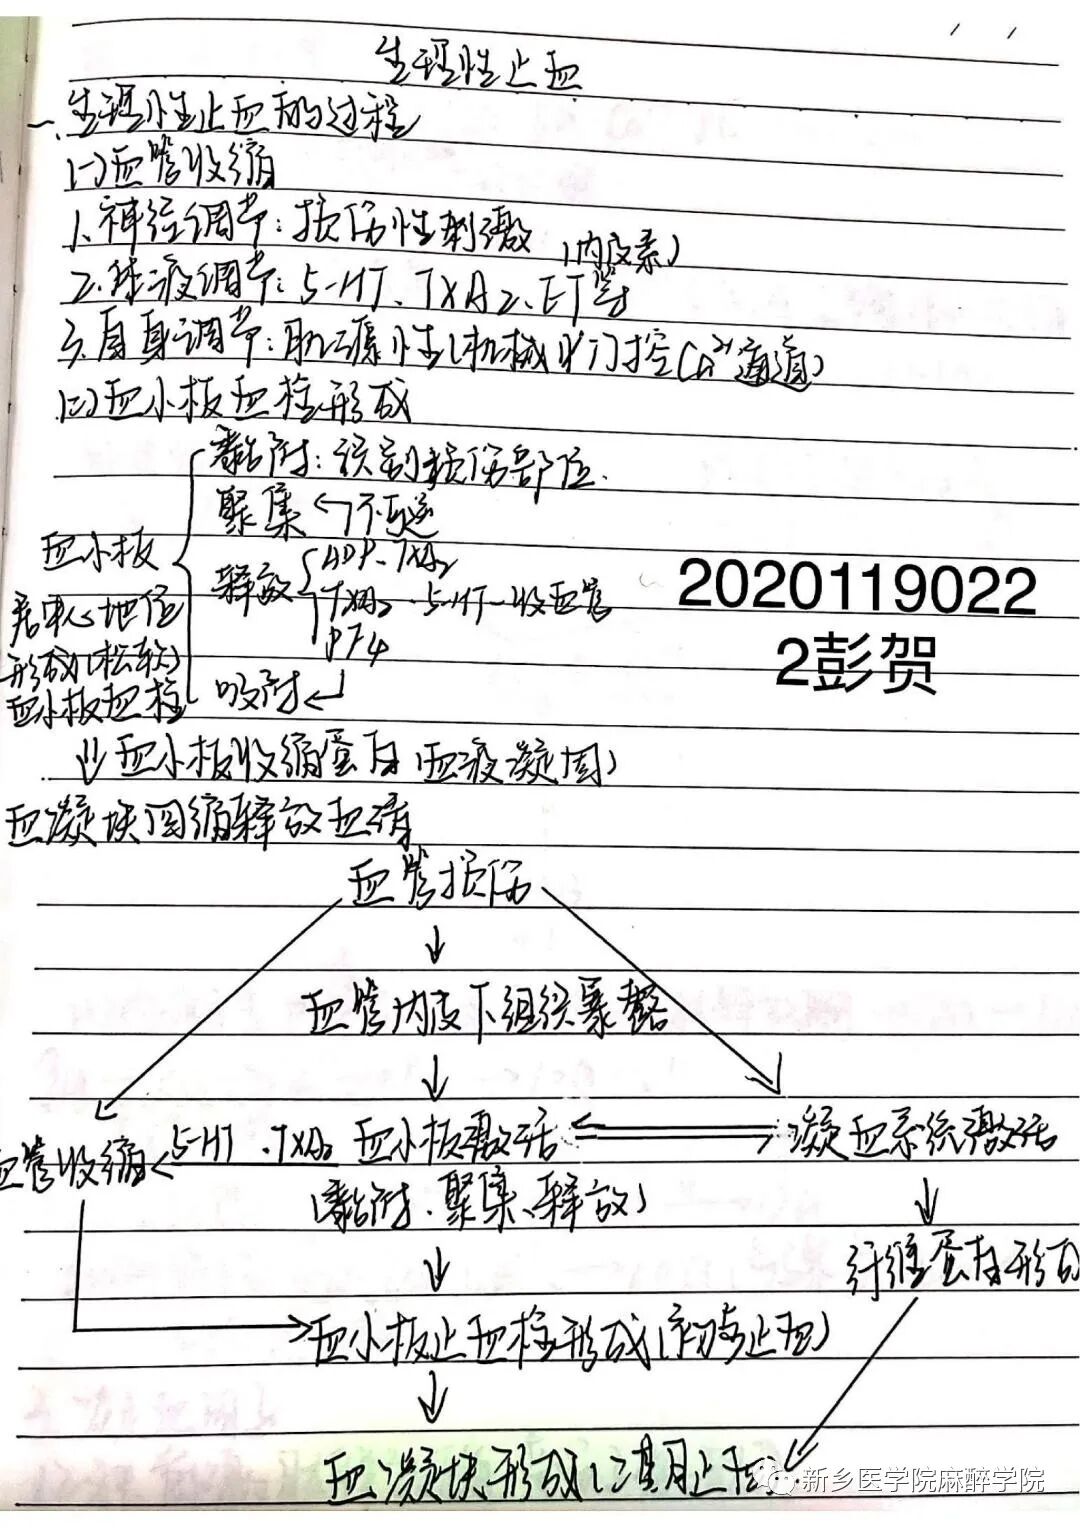 生理性止血
一、生理性止血的过程
(一)血管收缩
1.神经调节:损伤性刺激
(内皮素)
2.体液调节:5-HT、TXA2、ET等
3.自身调节:肌源性(机械门控Ca²⁺通道)
(二)血小板血栓形成
黏附:识别损伤部位.
聚集 ←不可逆
血小板
释放
ADP、TXA2
TXA2、5-HT-收血管
PF4
居中心地位
形成(松软)
血小板血栓
吸附←
⇓血小板收缩蛋白(血液凝固)
血凝块回缩释放血清
2020119022
2彭贺
血管损伤
↓
血管内皮下组织暴露
↓
血管收缩 ← 5-HT、TXA2 血小板激活 ⇌ 凝血系统激活
(黏附、聚集、释放)
↓
↓
纤维蛋白形成
血小板止血栓形成(初步止血)
↓
血凝块形成(二期止血)
新乡医学院麻醉学院